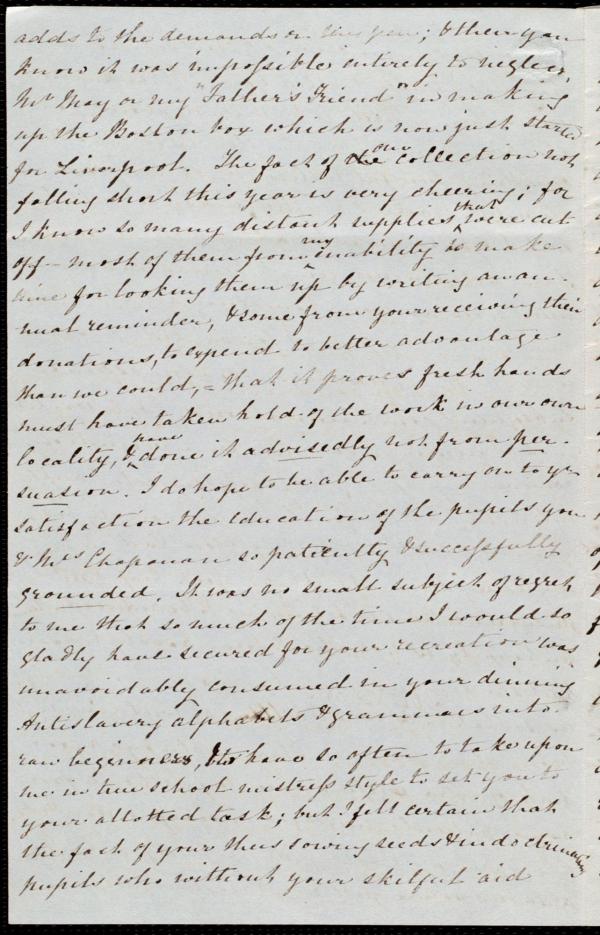 adds to the demands on this pen; & then you
know it was impossible entirely to neglect
Mr May or my "Father's Friend" in making
up the Boston box which is now just started
for Liverpool. The fact of the our collection not
falling short this year is very cheering; for
I know so many distant supplies that were cut
off – most of them from my inability to make
time for looking them up by writing an an-
nual reminder, & some from your receiving their
donations, to expend to better advantage
than we could, = that it proves fresh hands
must have taken hold of the work in our own
locality, & have done it advisedly not from per-
suasion. I do hope to be able to carry on to yr
satisfaction the education of the pupils you
& Mrs Chapman so patiently & successfully
grounded. It was no small subject of regret
to me that so much of the time I would so
gladly have secured for your recreation was
unavoidably consumed in your dinning
Antislavery alphabets & grammars into
raw beginners, & to have so often to take upon
me in true school mistress style to set you to
your allotted task; but I felt certain that
the fact of your thus sowing seeds & indoctrinating
pupils who without your skilful aid